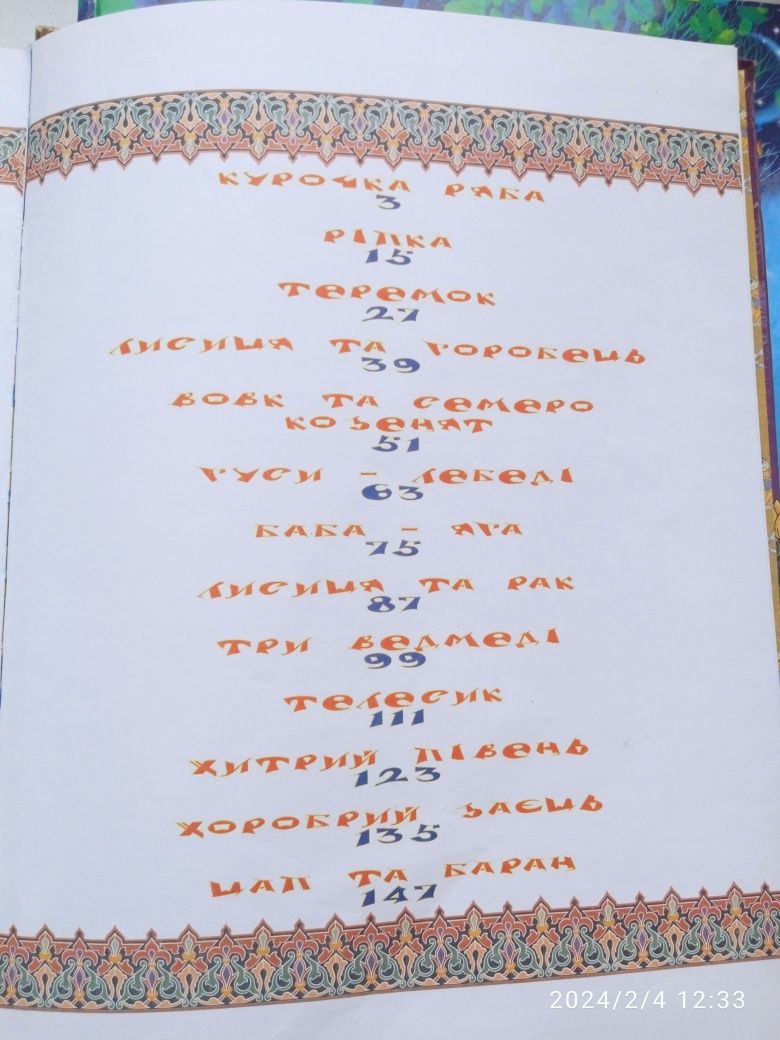 КУРОЧКА РЯБА
3
РІПКА
15
ТЕРЕМОК
27
ЛИСИЦЯ ТА ГОРОБЕЦЬ
39
ВОВК ТА СЕМЕРО
КОЗЕНЯТ
51
ГУСИ - ЛЕБЕДІ
63
БАБА - ЯГА
75
ЛИСИЦЯ ТА РАК
87
ТРИ ВЕДМЕДІ
99
ТЕЛЕСИК
111
ХИТРИЙ ПІВЕНЬ
123
ХОРОБРИЙ ЗАЄЦЬ
135
ЦАП ТА БАРАН
147
2024/2/4 12:33